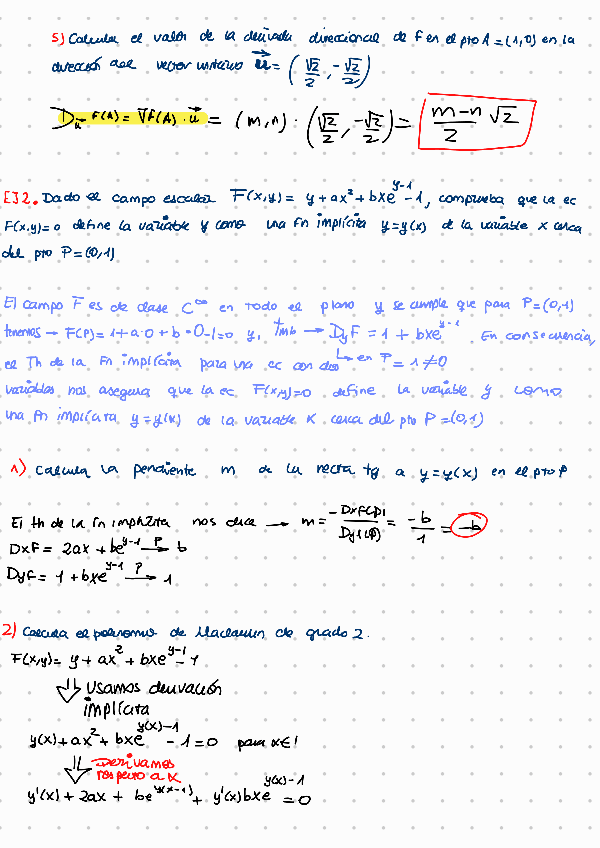 5) Calcula el valor de la derivada direccional de F en el pto A = (1,0) en la
dirección del vector unitario u⃗ = (√2/2, -√2/2)
D_u⃗ F(A) = ∇F(A) · u⃗ = (m,n) · (√2/2, -√2/2) = (m-n)/2 √2
E32. Dado el campo escalar F(x,y) = y + ax² + bxe^(y-1) - 1, comprueba que la ec
F(x,y)=0 define la variable y como una fn implícita y=y(x) de la variable x cerca
del pto P=(0,1)
El campo F es de clase C^∞ en todo el plano y se cumple que para P=(0,1)
tenemos → F(P) = 1 + a·0 + b·0 - 1 = 0 y, tmb → DyF = 1 + bxe^(y-1) En consecuencia,
el Th de la Fn implícita para una ec con dos ↳ en P = 1 ≠ 0
variables nos asegura que la ec F(x,y)=0 define la variable y como
una fn implícita y=y(x) de la variable x cerca del pto P=(0,1)
1) Calcula la pendiente m de la recta tg a y=y(x) en el pto P
El th de la fn implícita nos dice → m = -DxF(P)/DyF(P) = -b/1 = -b
DxF = 2ax + be^(y-1) →P b
DyF = 1 + bxe^(y-1) →P 1
2) Calcula el polinomio de Maclaurin de grado 2.
F(x,y) = y + ax² + bxe^(y-1) - 1
⇓ Usamos derivación
implícita
y(x) + ax² + bxe^(y(x)-1) - 1 = 0 para x∈I
⇓ Derivamos
respecto a x
y'(x) + 2ax + be^(y(x)-1) + y'(x)bxe^(y(x)-1) = 0